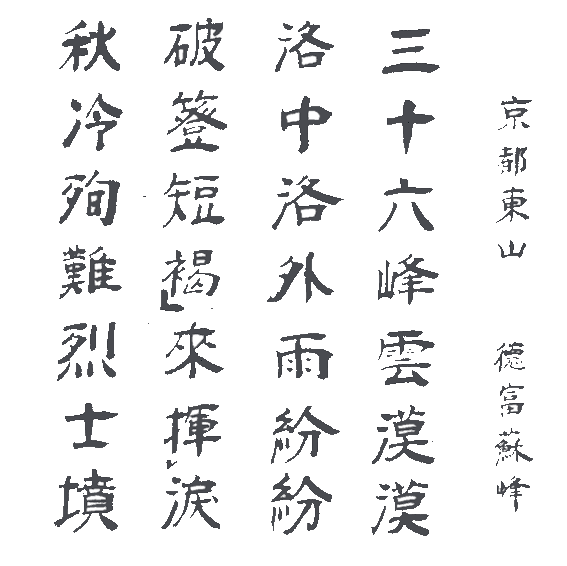 京都東山 德富蘇峰
三十六峰雲漠漠
洛中洛外雨紛紛
破簦短褐來揮淚
秋冷殉難烈士墳